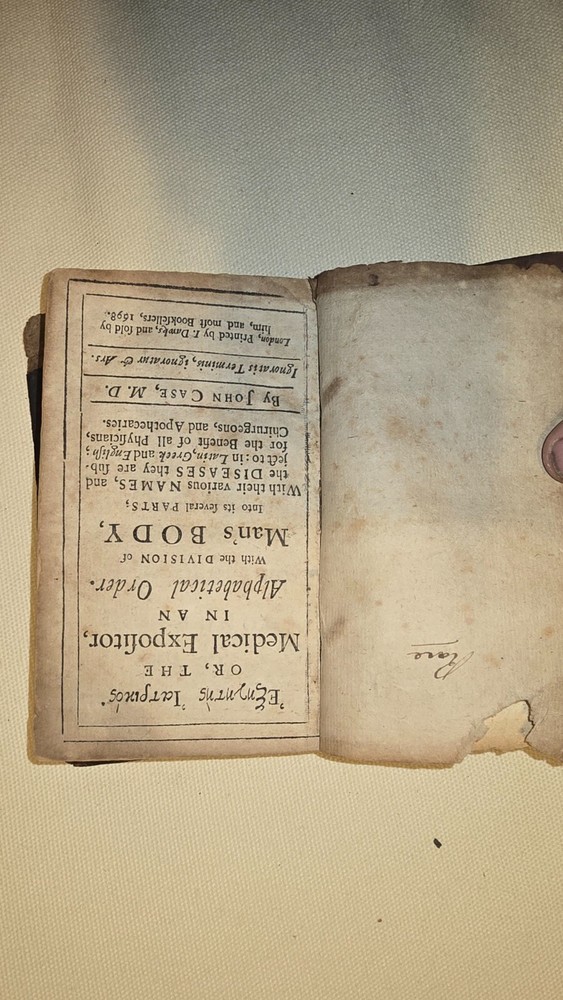 Rare
Ἐξηγητὴς Ἰατρικός·
OR, THE
Medical Expoſitor,
IN AN
Alphabetical Order.
With the DIVISION of
Man's BODY,
Into its ſeveral PARTS;
With their various NAMES, and
the DISEASES they are ſub-
ject to: in Latin, Greek and Engliſh;
for the Benefit of all Phyſicians,
Chirurgeons, and Apothecaries.
By JOHN CASE, M. D.
Ignoratis Terminis, ignoratur & Ars.
London, Printed by I. Dawks, and ſold by
him, and moſt Bookſellers, 1698.